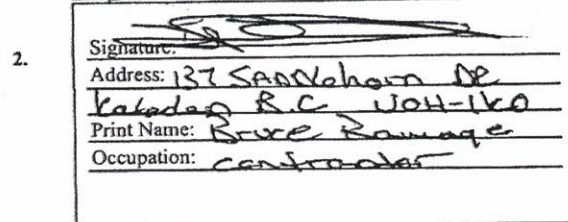 2.
Signature:
Address: 137 SADDlehorn DR
Kaleden B.C V0H-1K0
Print Name: Bruce Ramage
Occupation: contractor